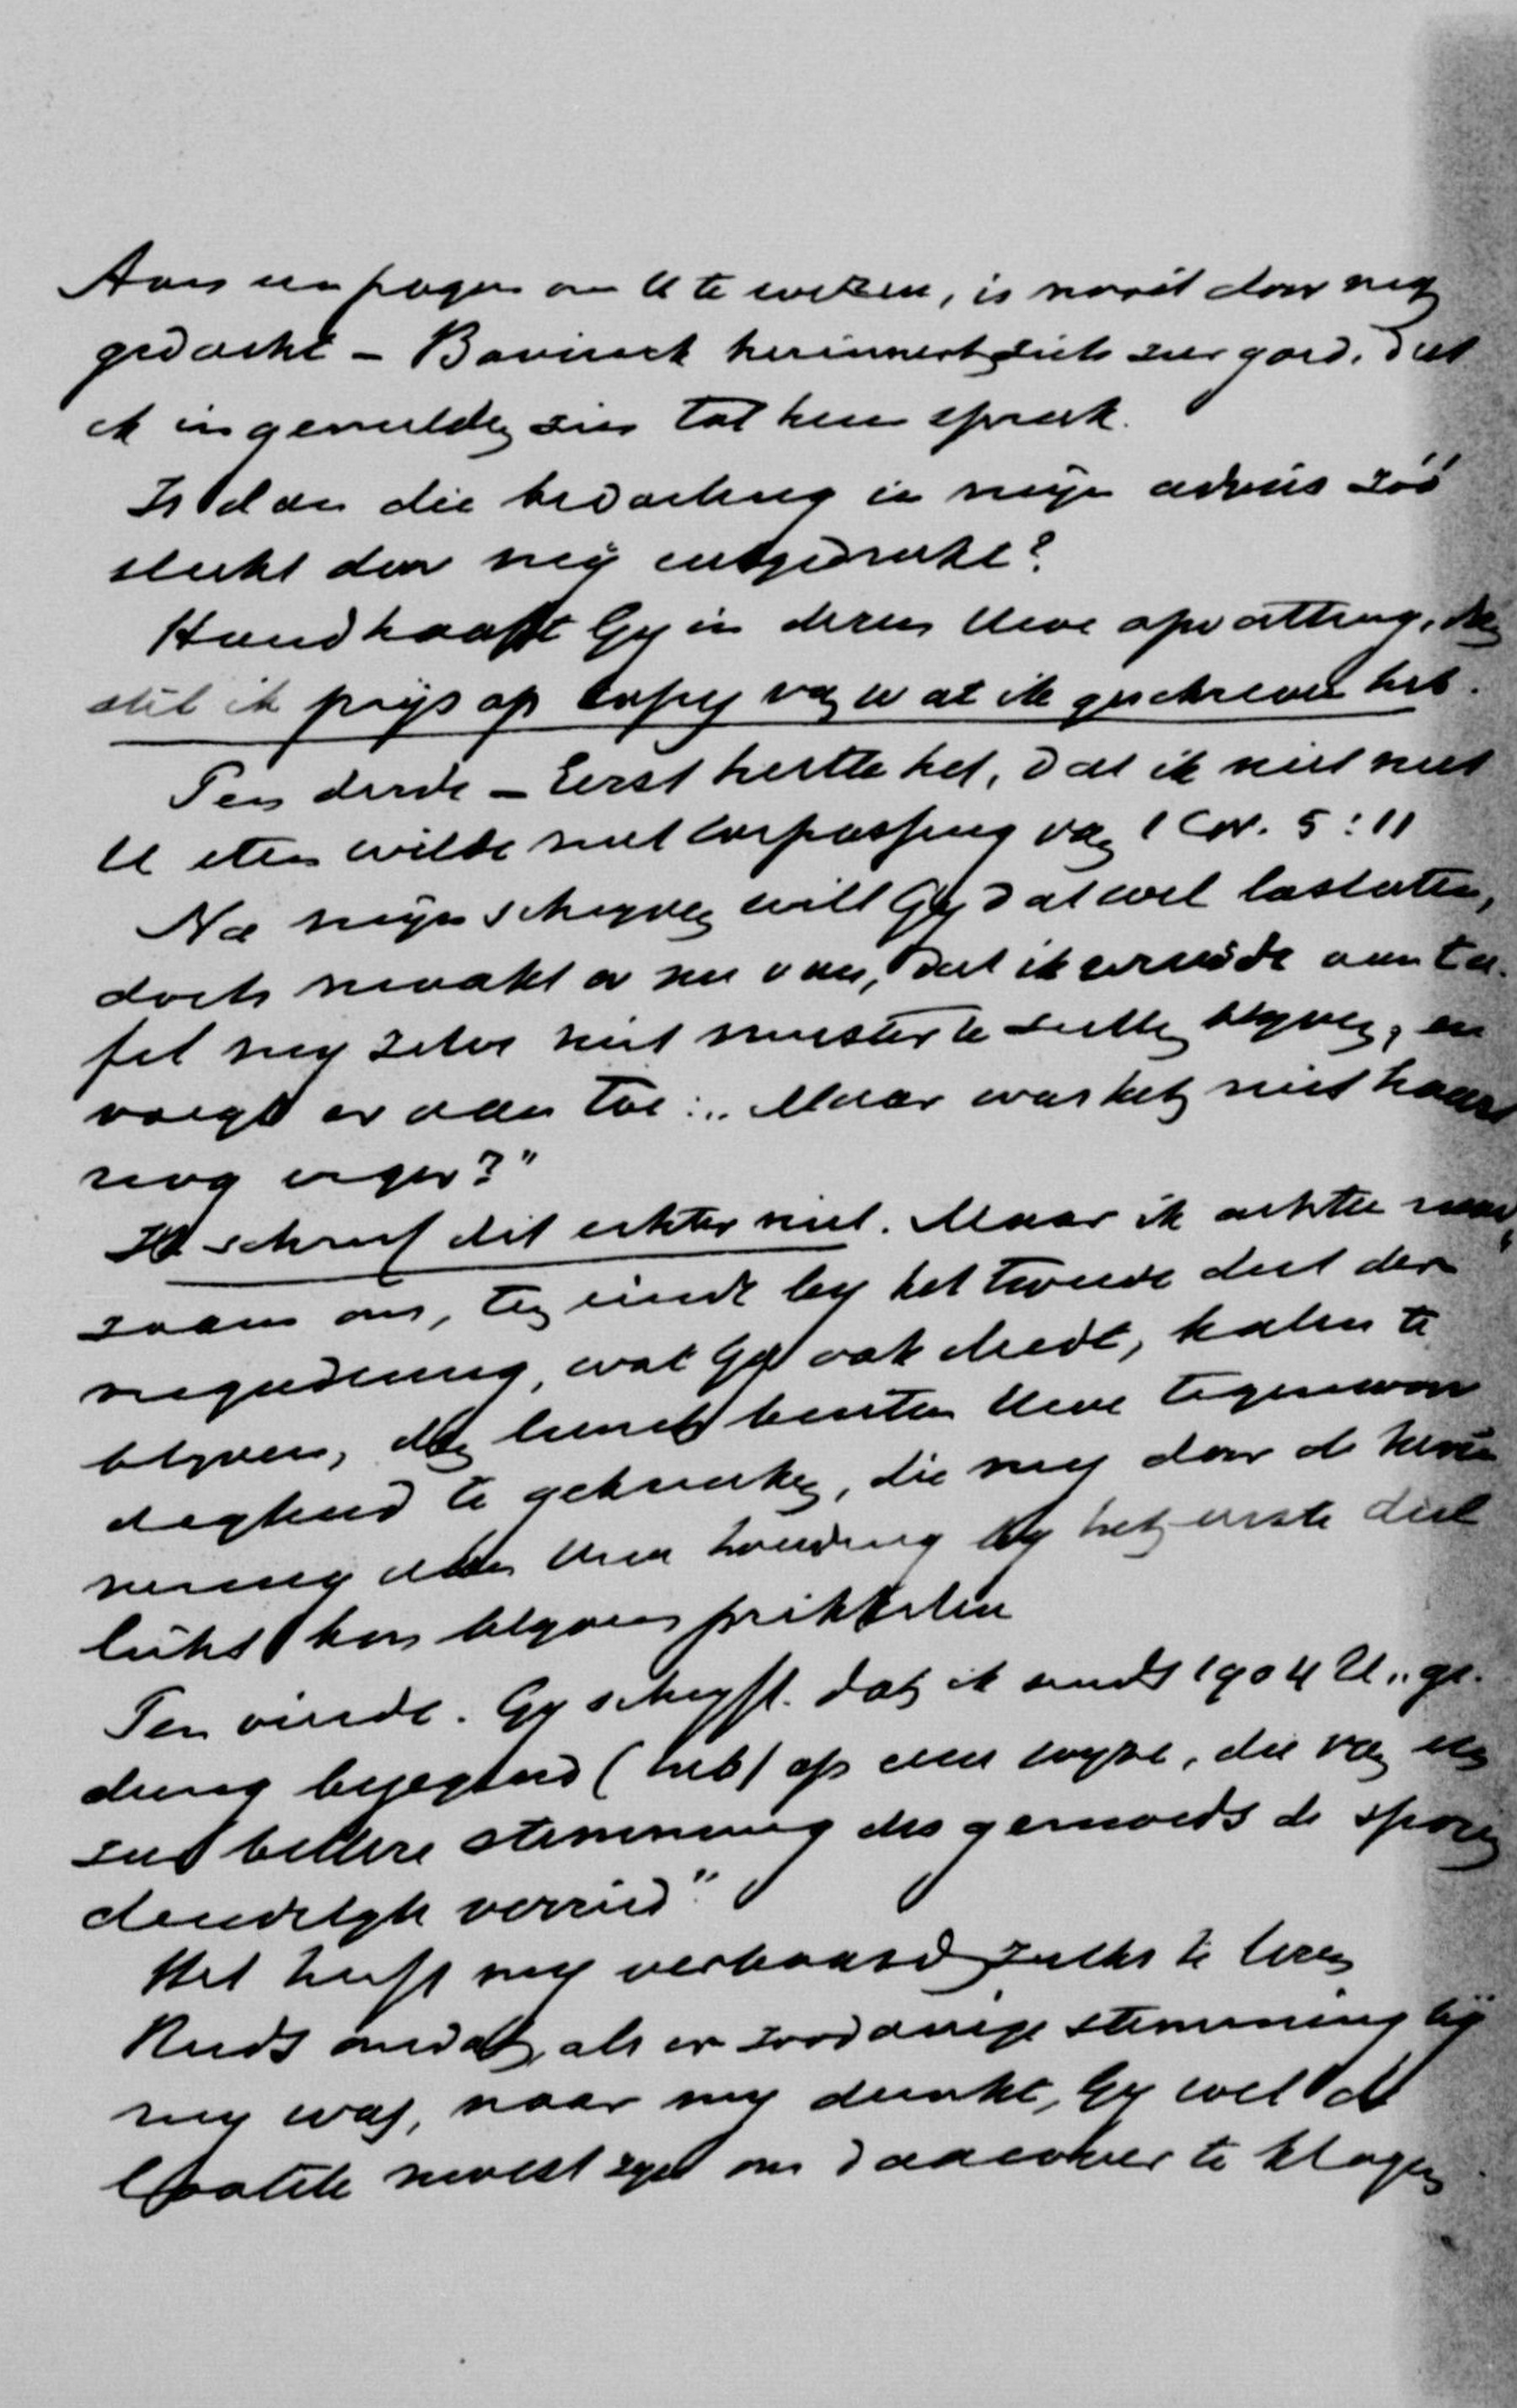 Aan een pogen om U te weren, is nooit door mij
gedacht – Bavinck herinnert zich zeer goed, dat
ik in gemelden zin tot hem sprak.
Is dan die bedoeling in mijn advies zóó
slecht door mij uitgedrukt?
Handhaaft Gij in dezen Uwe opvatting, dan
stel ik prijs op copy van wat ik geschreven heb.
Ten derde – Eerst heette het, dat ik niet met
U eten wilde met toepassing van 1 Cor. 5:11
Na mijn schrijven wilt Gij dat wel loslaten,
doch maakt er nu van, dat ik vreesde aan ta-
fel mij zelve niet meester te zullen blijven, en
voegt er aan toe: „Maar was het niet haast
nog erger?"
Ik schreef dit echter niet. Maar ik achtte raad-
zaam om, ten einde bij het tweede deel der
vergadering, wat Gij ook deedt, kalm te
blijven, den lunch buiten Uwe tegenwoor
digheid te gebruiken, die mij door de herin
nering aan Uwe houding bij het eerste deel
licht kon blijven prikkelen
Ten vierde. Gij schrijft dat ik sinds 1904 U „ge-
durig bejegend (heb) op eene wijze, die van een
zeer bittere stemming des gemoeds de sporen
duidelijk verried".
Het heeft mij verbaasd zulks te lezen
Reeds omdat, als er zoodanige stemming bij
mij was, naar mij dunkt, Gij wel de
laatste moest zijn om daarover te klagen.